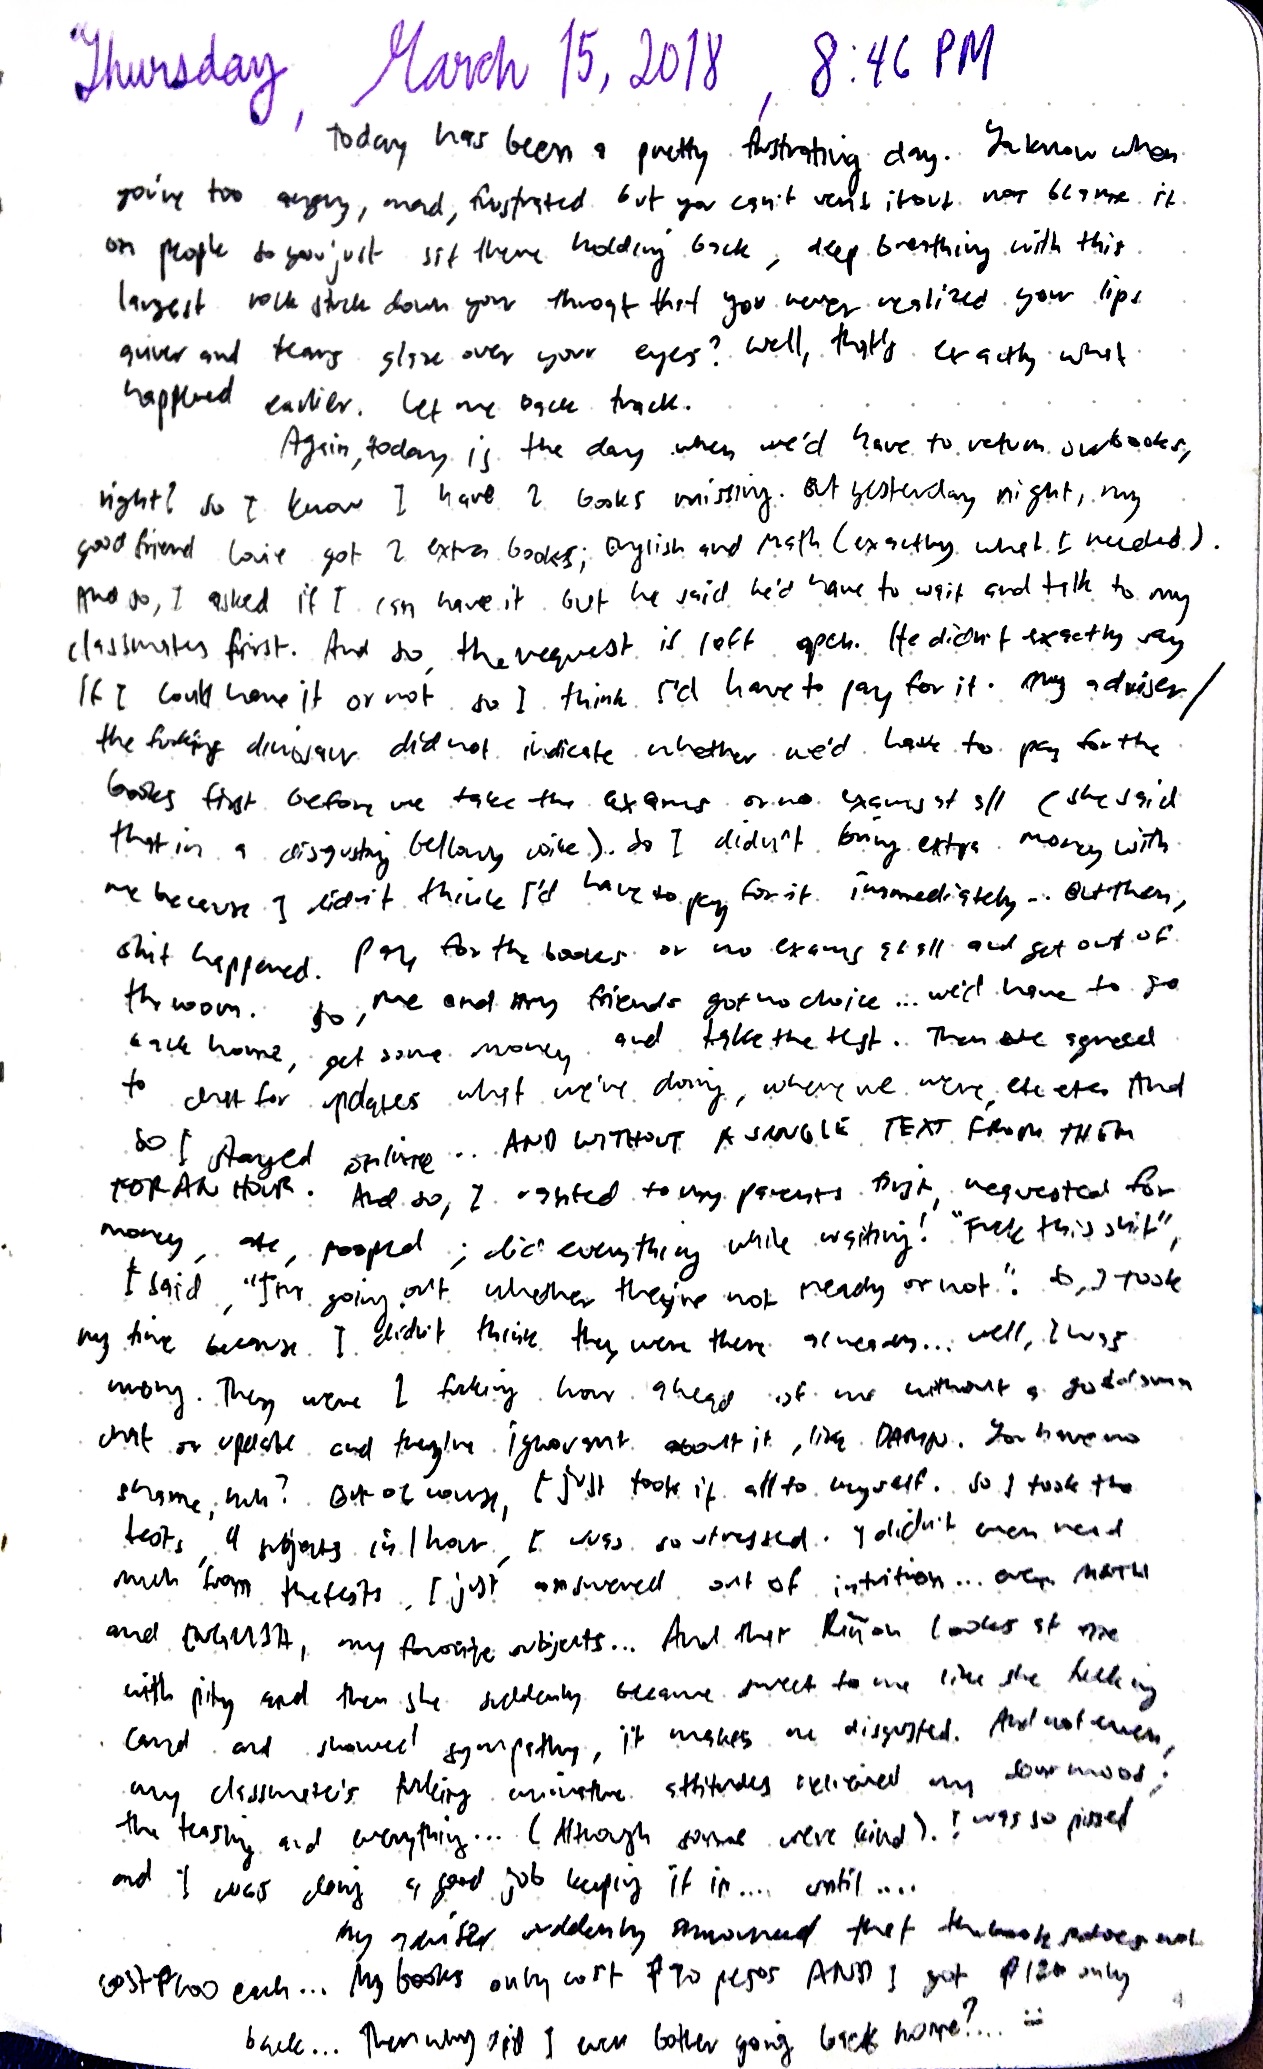 Thursday, March 15, 2018, 8:46 PM
Today has been a pretty frustrating day. Ya know when
you're too angry, mad, frustrated but you can't vent it out nor blame it
on people so you just sit there holding back, deep breathing with this
largest rock stuck down your throat that you never realized your lips
quiver and tears glaze over your eyes? Well, that's exactly what
happened earlier. Let me back track.
Again, today is the day when we'd have to return our books,
right? So I know I have 2 books missing. But yesterday night, my
good friend got 2 extra books; English and Math (exactly what I needed).
And so, I asked if I can have it but he said he'd have to wait and talk to my
classmates first. And so, the request is left open. He didn't exactly say
if I could have it or not so I think I'd have to pay for it. My adviser/
the fucking dinosaur did not indicate whether we'd have to pay for the
books first before we take the exams or no exams at all (she said
that in a disgusting bellowy voice). So I didn't bring extra money with
me because I didn't think I'd have to pay for it immediately... But then,
shit happened. Pay for the books or no exams at all and get out of
the room. So, me and my friends got no choice... we'd have to go
back home, get some money and take the test. Then we agreed
to chat for updates what we're doing, where we were, etc etc. And
so I stayed online... AND WITHOUT A SINGLE TEXT FROM THEM
FOR AN HOUR. And so, I to my parents first, requested for
money, ate, pooped; did everything while waiting! "Fuck this shit",
I said, "I'm going out whether they're not ready or not". So, I took
my time because I didn't think they were there already... well, I was
wrong. They were 1 fucking hour ahead of me without a goddamn
chat or update and they're ignorant about it, like DAMN. You have no
shame, huh? But of course, I just took it all to myself. So I took the
tests, 4 subjects in 1 hour, I was so stressed. I didn't even read
much from the tests, I just answered out of intuition... even MATH
and ENGLISH, my favorite subjects... And that Riñon looks at me
with pity and then she suddenly became sweet to me like she fucking
cared and showed sympathy, it makes me disgusted. And not even,
my classmate's fucking attitudes my sour mood;
the teasing and everything... (Although some were kind). I was so pissed
and I was doing a good job keeping it in.... until ....
My adviser suddenly announced that the book does not
cost ₱600 each... My books only cost ₱90 pesos AND I got ₱120 only
back... Then why did I even bother going back home?... :(